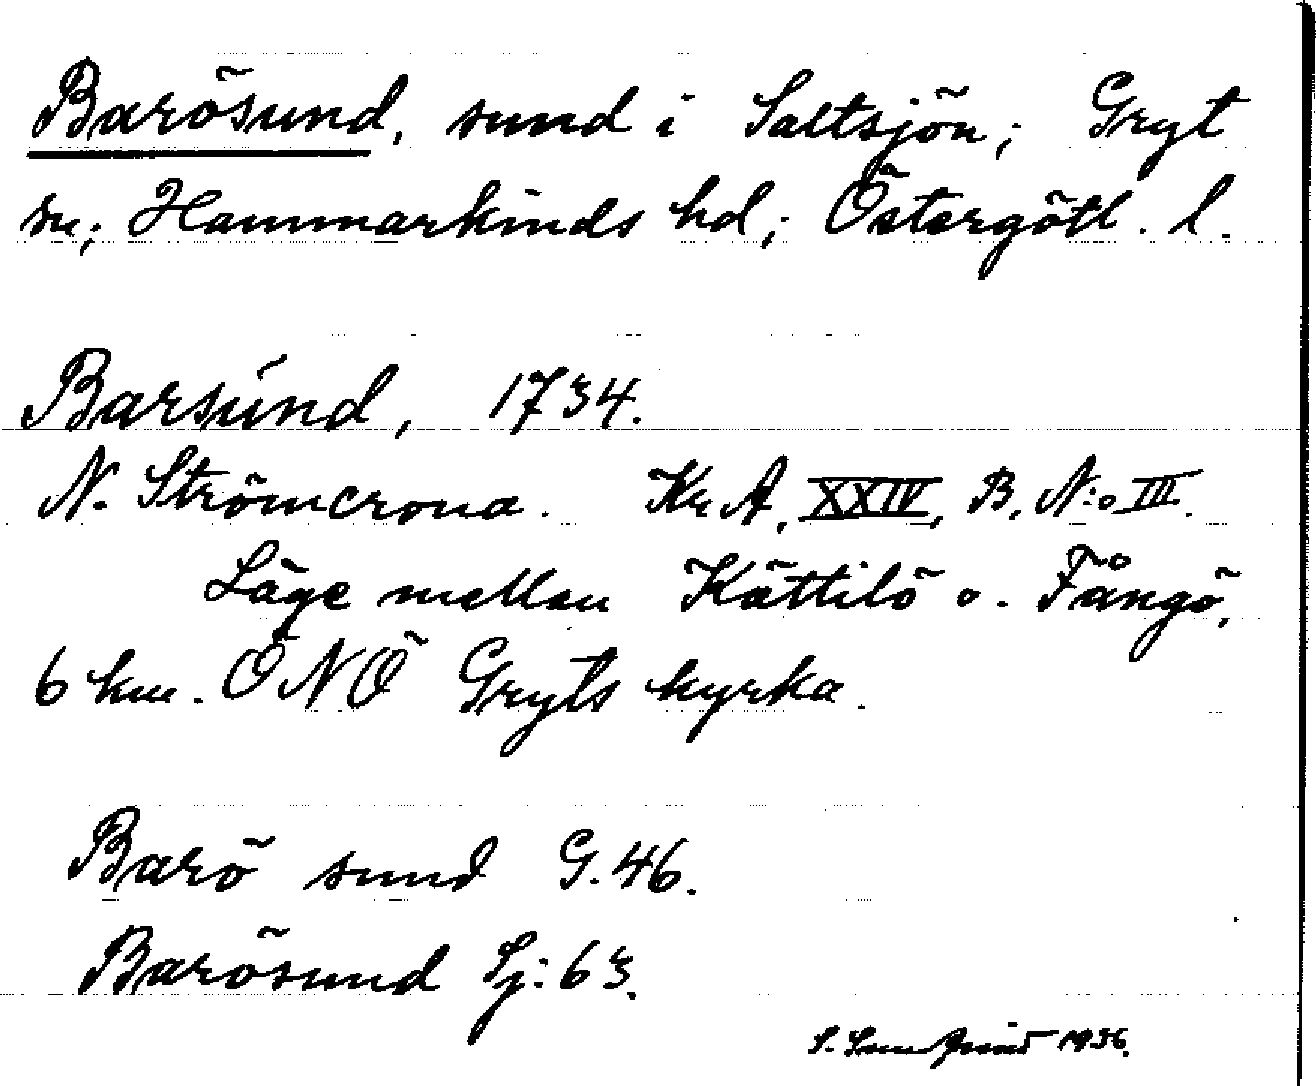 Barösund, sund i Saltsjön; Gryt
sn; Hammarkinds hd; Östergötl. l.
Barsúnd, 1734.
N. Strömcrona. Kr. A. XXIV, B. N:o III.
Läge mellan Kättilö o. Fångö,
6 km. ONÖ Gryts kyrka.
Barö sund G. 46.
Barösund Sj: 63.
S. 1936.